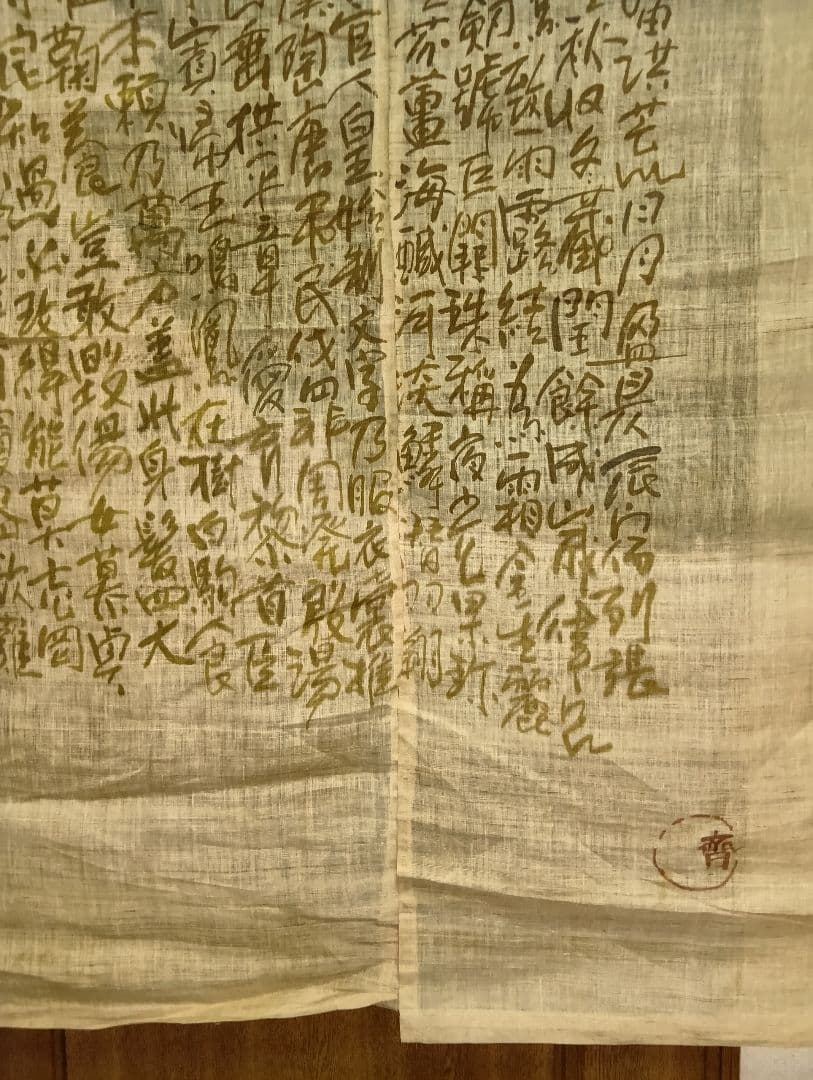 宙洪荒日月盈昃辰宿列張
秋收冬藏閏餘成歲律呂
致雨露結為霜金生麗
劍號巨闕珠稱夜光果珍
芥薑海鹹河淡鱗潛羽翔
官人皇始制文字乃服衣裳推
陶唐弔民伐罪周發殷湯
垂拱平章愛育黎首臣
賓歸王鳴鳳在樹白駒食
木賴及萬方蓋此身髮四大
鞠養豈敢毀傷女慕貞
知過必改得能莫忘罔
器欲難
齊